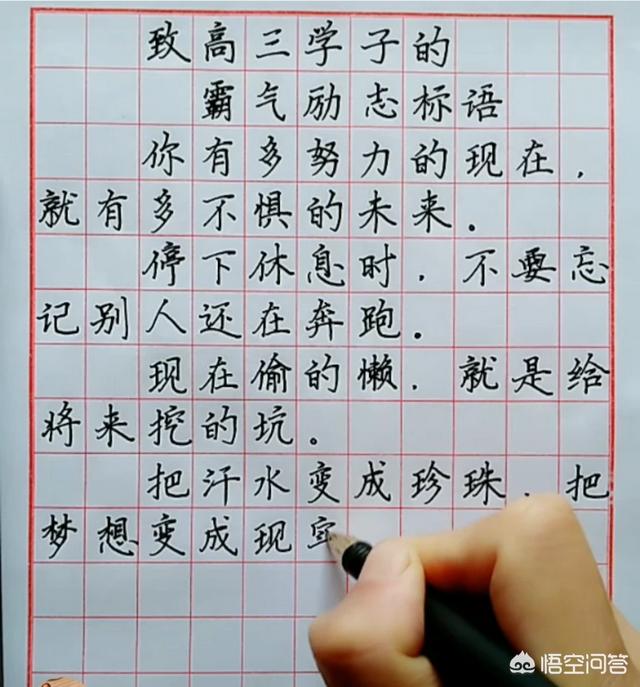 致高三学子的
霸气励志标语
你有多努力的现在，
就有多不惧的未来。
停下休息时，不要忘
记别人还在奔跑。
现在偷的懒，就是给
将来挖的坑。
把汗水变成珍珠，把
梦想变成现
悟空问答